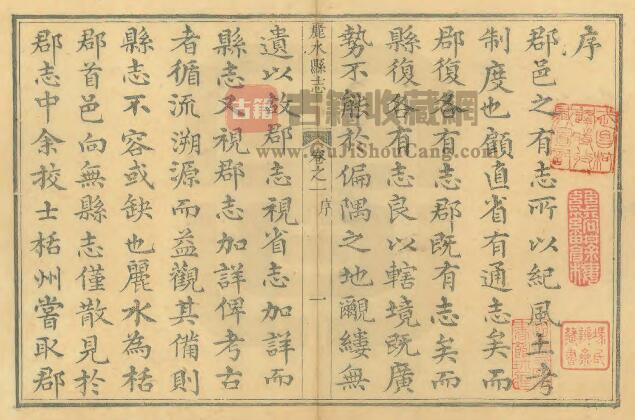 序
郡邑之有志所以紀風土考
制度也顧直省有通志矣而
郡復各有志郡既有志矣而
縣復各有志良以轄境既廣
勢不能於偏隅之地覼縷無
麗水縣志 卷之一 序 一
遺以故郡志視省志加詳而
縣志又視郡志加詳俾考古
者循流溯源而益觀其備則
縣志不容或缺也麗水為栝
郡首邑向無縣志僅散見於
郡志中余挍士栝州嘗取郡
古籍
古籍收藏網
GuJiShouCang.com